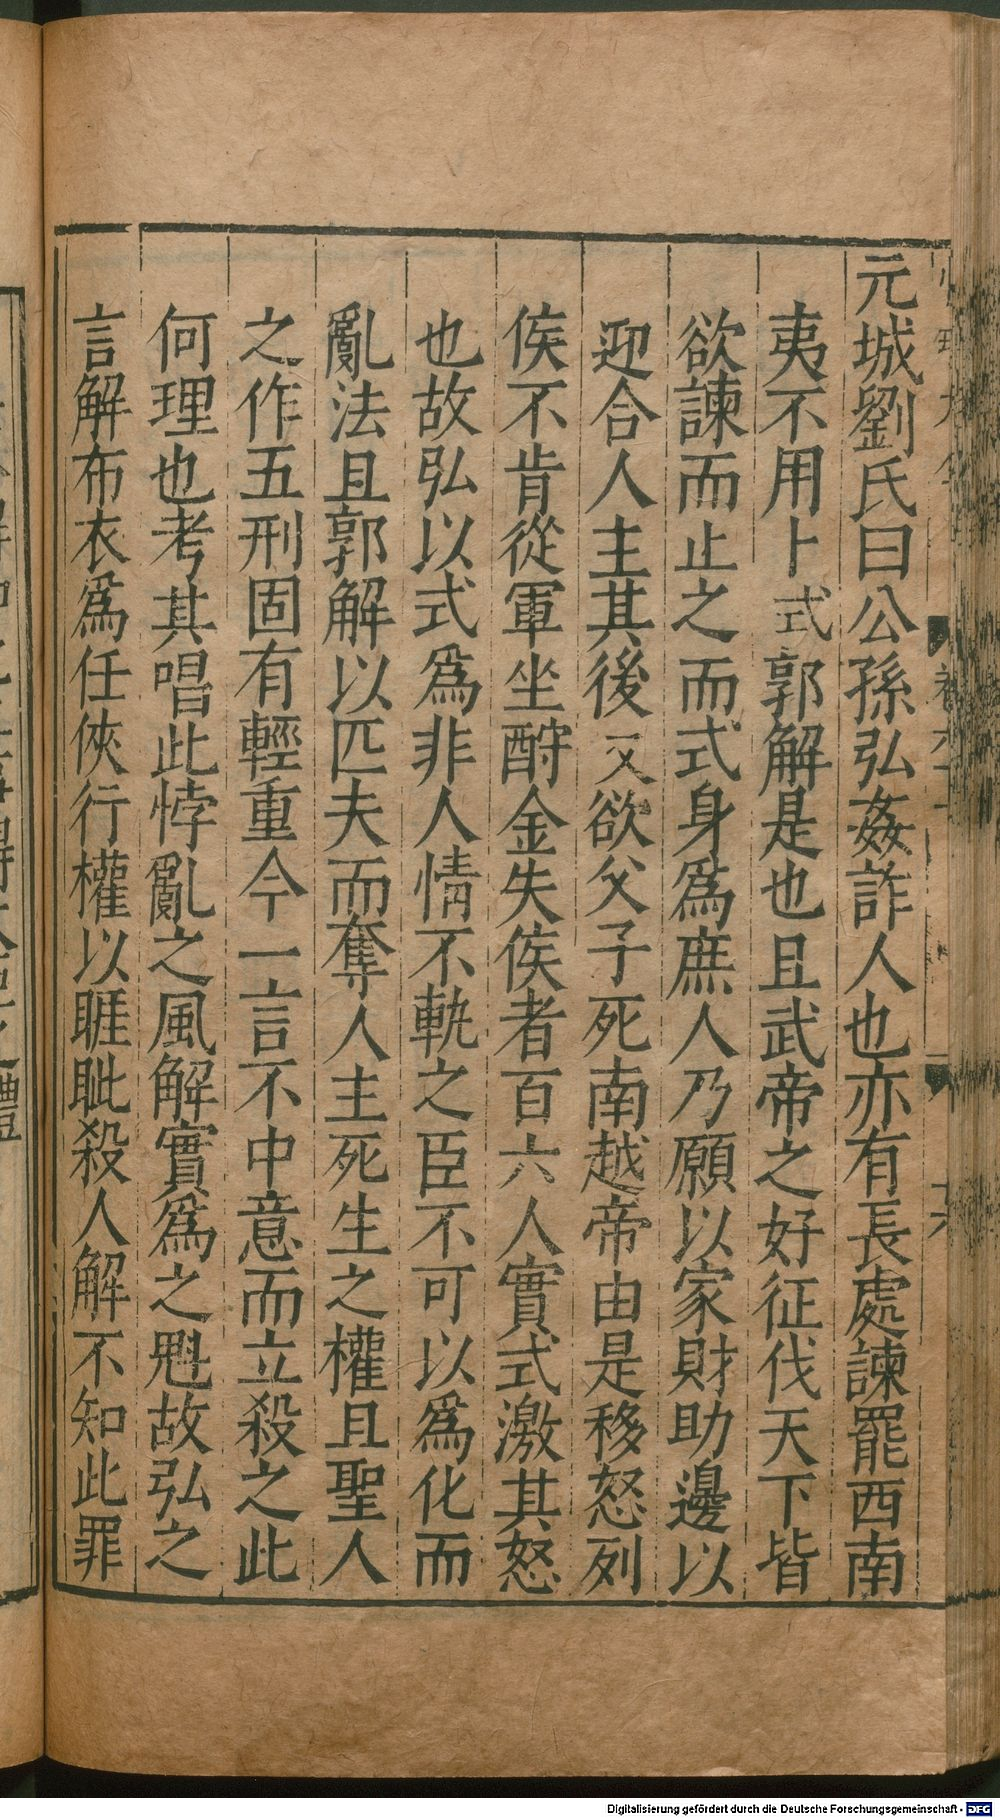 元城劉氏曰公孫弘姦詐人也亦有長處諫罷西南
夷不用卜式郭解是也且武帝之好征伐天下皆
欲諫而止之而式身爲庶人乃願以家財助邊以
迎合人主其後又欲父子死南越帝由是移怒列
侯不肯從軍坐酎金失侯者百六人實式激其怒
也故弘以式爲非人情不軌之臣不可以爲化而
亂法且郭解以匹夫而奪人主死生之權且聖人
之作五刑固有輕重今一言不中意而立殺之此
何理也考其唱此悖亂之風解實爲之魁故弘之
言解布衣爲任俠行權以睚眦殺人解不知此罪
Digitalisierung gefördert durch die Deutsche Forschungsgemeinschaft - DFG